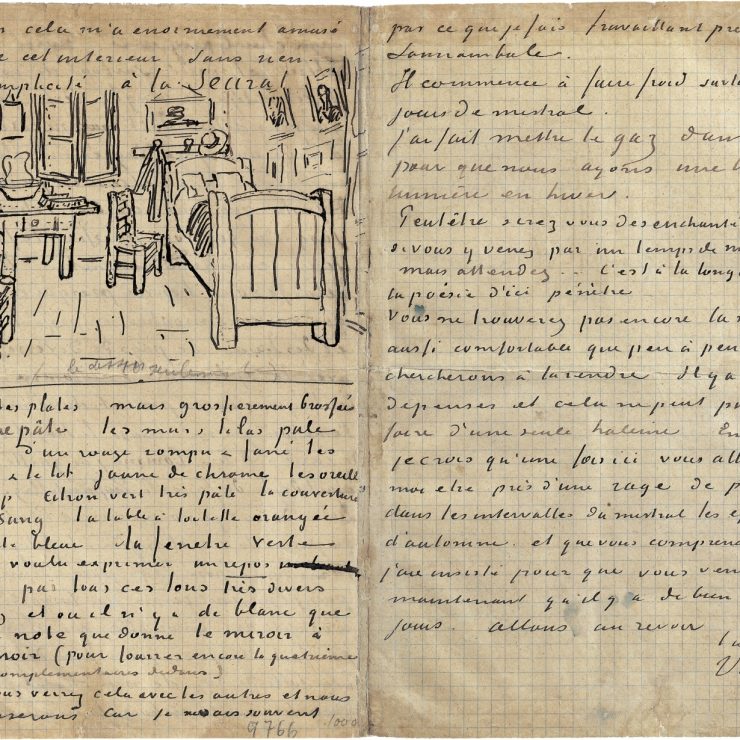 cela m'a enormement amusé
cet interieur sans rien.
mplicité à la Seurat
le dessin seulement
tes plates mais grossierement brossée
pâte les murs lilas pale
D'un rouge rompu & fané les
& le lit jaune de chrome les oreille
citron vert très pâle la couverture
Sang la table à toilette orangée
te bleue la fenetre verte
voulu exprimer un repos
par tous ces tons très divers
et ou il n'y a de blanc que
note que donne le miroir à
noir (pour fourrer encore la quatrième
complementaires dedans)
ous verrez cela avec les autres et nous
serons car je ne sais souvent
9766 1000
par ce que je fais travaillant pre
somnambule.
Il commence à faire froid surto
jours de mistral.
J'ai fait mettre le gaz dan
pour que nous ayons une b
lumière en hiver.
Peutêtre serez vous desenchanté
si vous y venez par un temps de m
mais attendez .. C'est à la longu
la poésie d'ici pénètre
Vous ne trouverez pas encore la
aussi comfortable que peu à peu
chercherons à la rendre Il y a
depenses et cela ne peut p
faire d'une seule haleine En
je crois qu'une fois ici vous all
moi etre pris d'une rage de p
dans les intervalles du mistral les e
d'automne. et que vous comprend
j'aie insisté pour que vous ven
maintenant qu'il y a de bien
jours. allons au revoir
V